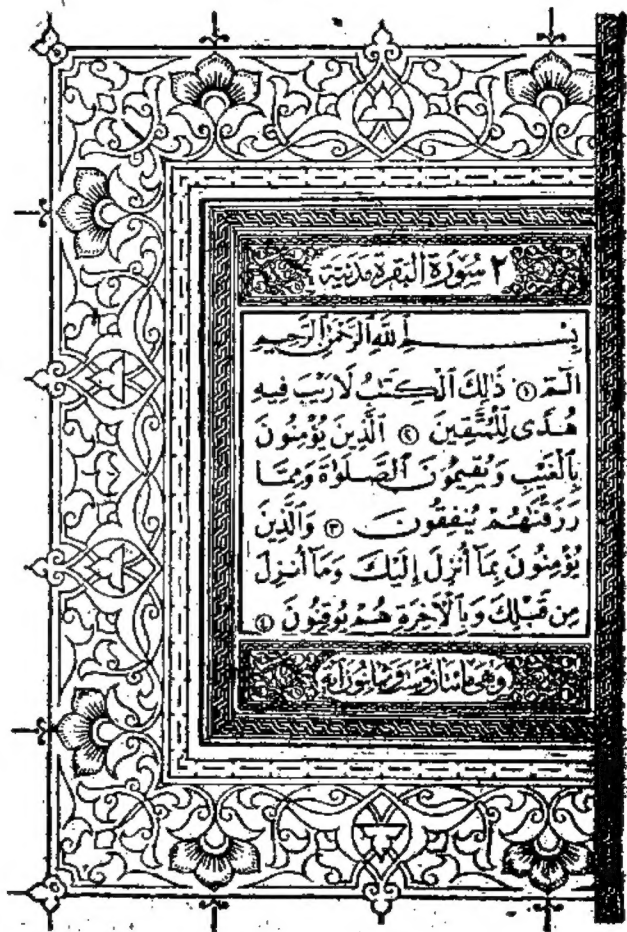 ٢ سُورَةُ البَقَرَةِ مَدَنِيَّة
بِسْمِ ٱللَّهِ ٱلرَّحْمَٰنِ ٱلرَّحِيمِ
الٓمٓ ١ ذَٰلِكَ ٱلْكِتَٰبُ لَا رَيْبَ فِيهِ
هُدًى لِّلْمُتَّقِينَ ٢ ٱلَّذِينَ يُؤْمِنُونَ
بِٱلْغَيْبِ وَيُقِيمُونَ ٱلصَّلَوٰةَ وَمِمَّا
رَزَقْنَٰهُمْ يُنفِقُونَ ٣ وَٱلَّذِينَ
يُؤْمِنُونَ بِمَآ أُنزِلَ إِلَيْكَ وَمَآ أُنزِلَ
مِن قَبْلِكَ وَبِٱلْءَاخِرَةِ هُمْ يُوقِنُونَ ٤
وَهِيَ مائتان وست وثمانون آية